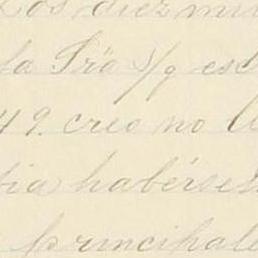 Los diez mil
la Fra S/g es
49. creo no
habérse
principale